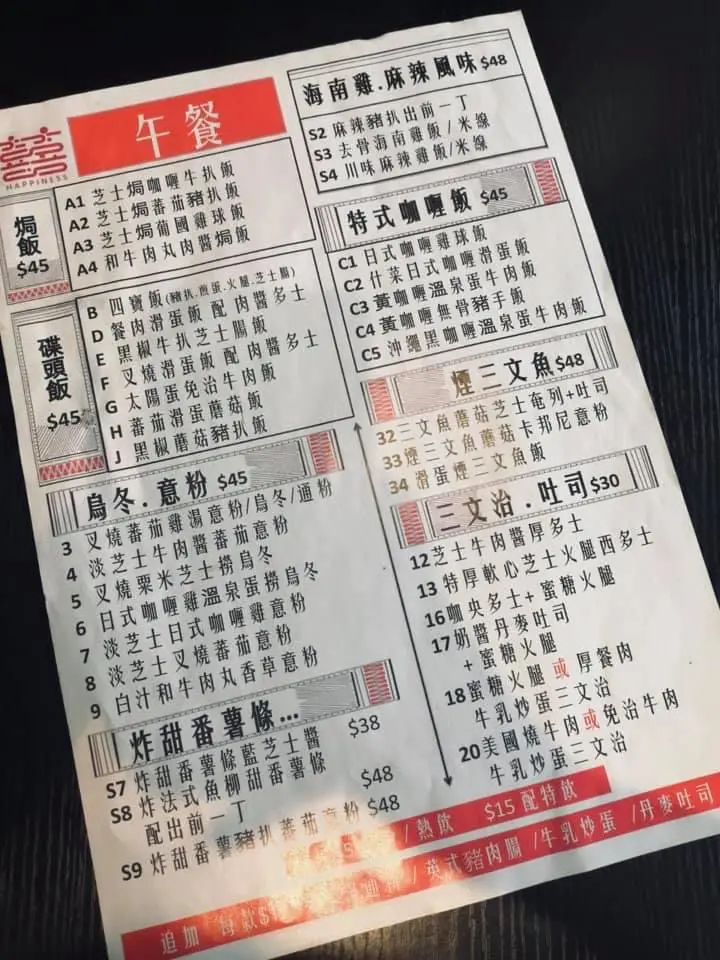 HAPPINESS
午餐
焗飯
$45
A1 芝士焗咖喱牛扒飯
A2 芝士焗蕃茄豬扒飯
A3 芝士焗葡國雞球飯
A4 和牛肉丸肉醬焗飯
碟頭飯
$45
B 四寶飯(豬扒.煎蛋.火腿.芝士腸)
D 餐肉滑蛋飯 配肉醬多士
E 黑椒牛扒芝士腸飯
F 叉燒滑蛋飯 配肉醬多士
G 太陽蛋免治牛肉飯
H 蕃茄滑蛋蘑菇飯
J 黑椒蘑菇豬扒飯
烏冬.意粉 $45
3 叉燒蕃茄雞湯意粉/烏冬/通粉
4 淡芝士牛肉醬蕃茄意粉
5 叉燒粟米芝士撈烏冬
6 日式咖喱雞溫泉蛋撈烏冬
7 淡芝士日式咖喱雞意粉
8 淡芝士叉燒蕃茄意粉
9 白汁和牛肉丸香草意粉
炸甜番薯條...
S7 炸甜番薯條藍芝士醬 $38
S8 炸法式魚柳甜番薯條
配出前一丁 $48
S9 炸甜番薯豬扒蕃茄意粉 $48
海南雞.麻辣風味 $48
S2 麻辣豬扒出前一丁
S3 去骨海南雞飯/米線
S4 川味麻辣雞飯/米線
特式咖喱飯 $45
C1 日式咖喱雞球飯
C2 什菜日式咖喱滑蛋飯
C3 黃咖喱溫泉蛋牛肉飯
C4 黃咖喱無骨豬手飯
C5 沖繩黑咖喱溫泉蛋牛肉飯
煙三文魚 $48
32 三文魚蘑菇芝士奄列+吐司
33 煙三文魚蘑菇卡邦尼意粉
34 滑蛋煙三文魚飯
三文治.吐司 $30
12 芝士牛肉醬厚多士
13 特厚軟心芝士火腿西多士
16 咖央多士+蜜糖火腿
17 奶醬丹麥吐司
+蜜糖火腿
18 蜜糖火腿 或 厚餐肉
牛乳炒蛋三文治
20 美國燒牛肉或免治牛肉
牛乳炒蛋三文治
/熱飲 $15 配特飲
追加 每款$ /英式豬肉腸/牛乳炒蛋/丹麥吐司